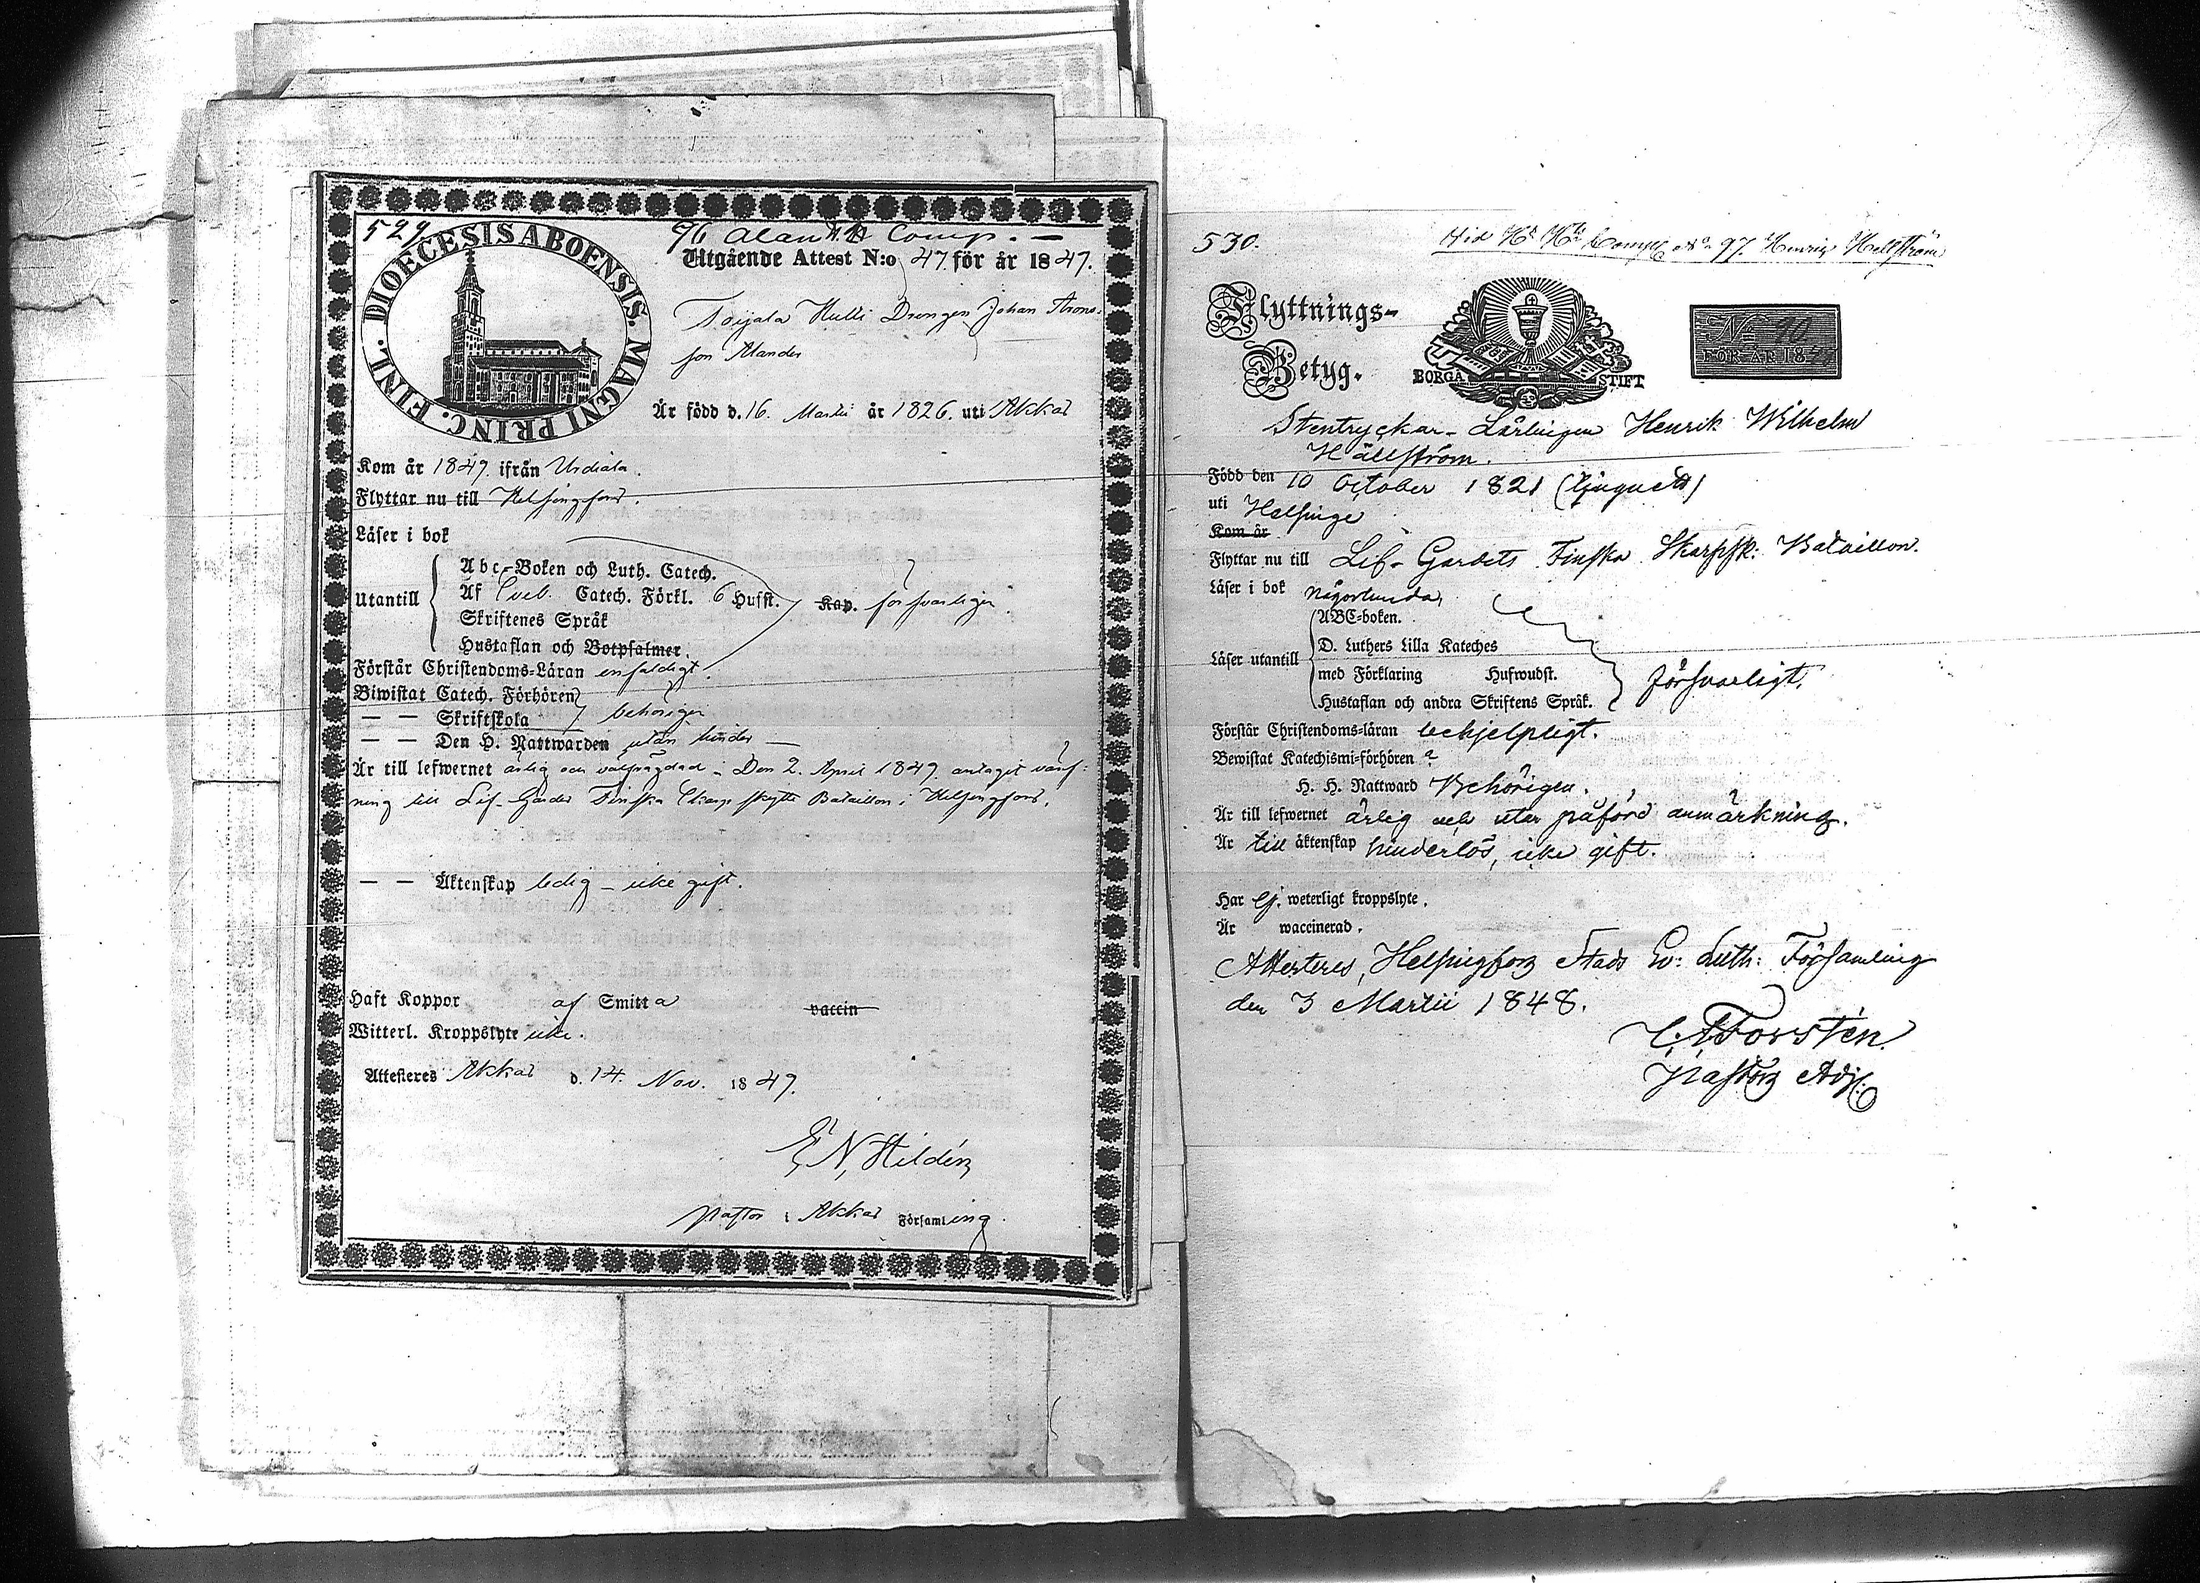 529
DIOECESIS ABOENSIS. MAGNI PRINC. FINL.
Comp.
Utgående Attest N:o 47. för år 1847.
Toijala Hutti Drengen Johan Arons-
son Mander
Är född d. 16. Martii år 1826. uti Akkas
Kom år 1847. ifrån Urdiala.
Flyttar nu till Helsingfors.
Läser i bok
Utantill
Abc-Boken och Luth. Catech.
Af Sveb. Catech. Förkl. 6 Hufst. Kap. försvarligen.
Skriftenes Språk
Hustaflan och Botpsalmer.
Förstår Christendoms-Läran enfaldigt.
Biwistat Catech. Förhören
— — Skriftskola behörigen
— — Den H. Nattwarden utan hinder —
Är till lefwernet ärlig och välfrägdad - Den 2. April 1847 antagit värf-
ning till Lif-Gardes Finska Skarpskytte Bataillon i Helsingfors.
— — Äktenskap ledig - icke gift.
Haft Koppor af Smitta vaccin
Witterl. Kroppslyte icke.
Attesteres Akkas d. 14. Nov. 1847.
E N, Hildén
Pastor i Akkas Församling.
530.
Comp: No 97. Henrik Hellström
Flyttnings-
Betyg.
BORGÅ STIFT
No 90
FÖR ÅR 18
Stentryckar-Lärlingen Henrik Wilhelm
Hällström.
Född den 10 October 1821
uti Helsinge
Kom år
Flyttar nu till Lif-Gardets Finska Skarpsk: Bataillon.
Läser i bok någorlunda,
Läser utantill
ABC-boken.
D. Luthers Lilla Kateches
med Förklaring Hufwudst.
Hustaflan och andra Skriftens Språk.
försvarligt.
Förstår Christendoms-läran behjelpligt.
Bewistat Katechismi-förhören
H. H. Nattward Behörigen.
Är till lefwernet ärlig och utan påförd anmärkning.
Är till äktenskap hinderlös, icke gift.
Har Ej. weterligt kroppslyte.
Är waccinerad.
Attesteres, Helsingfors Stads Ev: Luth: Församling
den 3 Martii 1848.
Forstén.
Pastors Adj: